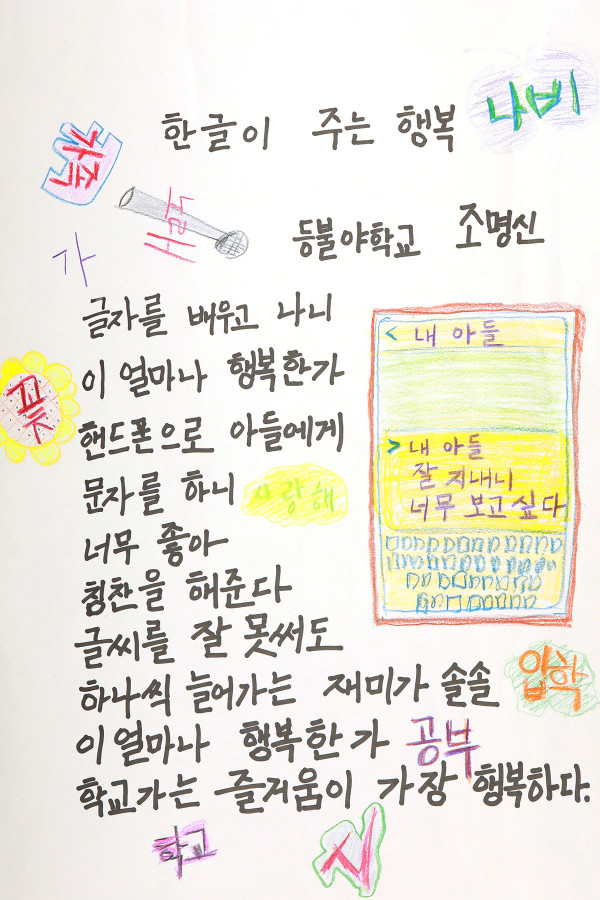 한글이 주는 행복
나비
가족
노래
등불야학교 조명신
가
글자를 배우고 나니
이 얼마나 행복한가
핸드폰으로 아들에게
문자를 하니
너무 좋아
칭찬을 해준다
글씨를 잘 못써도
하나씩 늘어가는 재미가 솔솔
이 얼마나 행복한가
학교가는 즐거움이 가장 행복하다.
꽃
사랑해
< 내 아들
> 내 아들
잘 지내니
너무 보고 싶다
입학
공부
학교
시